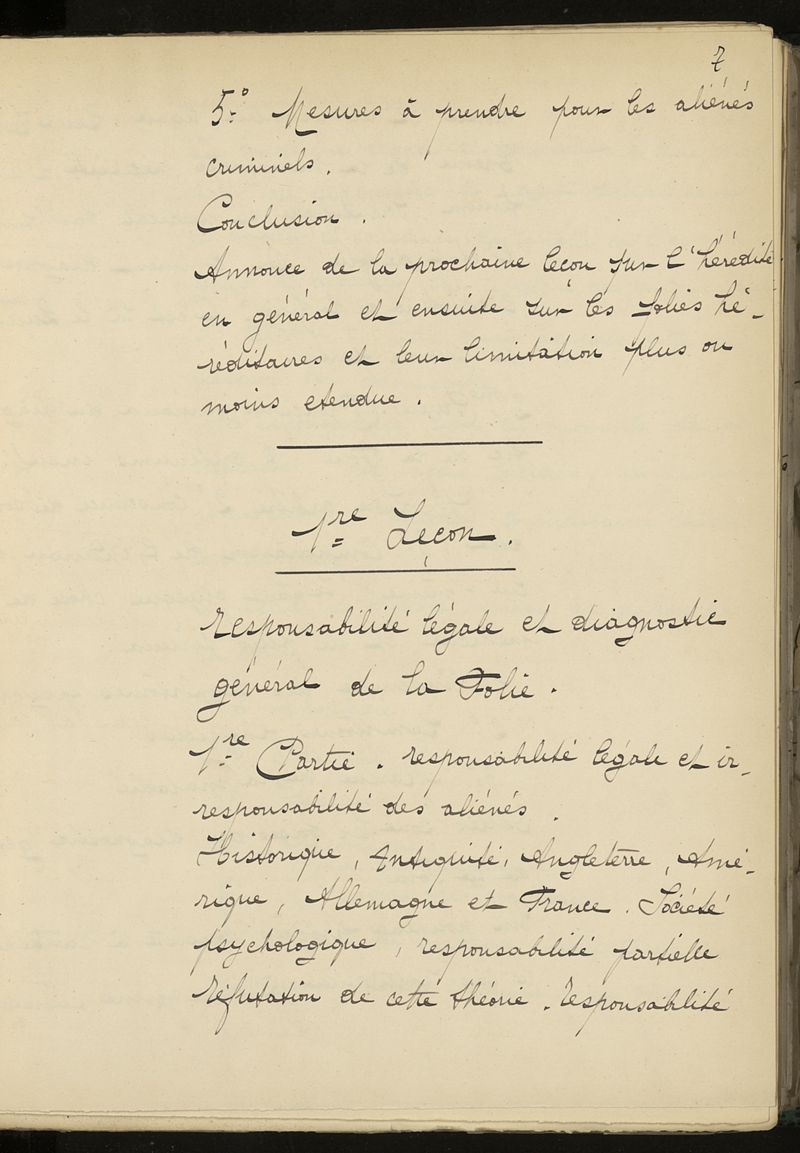 7
5.° Mesures à prendre pour les aliénés
criminels.
Conclusion.
Annonce de la prochaine leçon sur l'hérédité
en général et ensuite sur les folies hé-
réditaires et leur limitation plus ou
moins etendue.
1re Leçon.
responsabilité légale et diagnostic
général de la Folie.
1re Partie. responsabilité légale et ir-
responsabilité des aliénés.
Historique, Antiquité, Angleterre, Amé-
rique, Allemagne et France. Société
psychologique, responsabilité partielle
réfutation de cette théorie. responsabilité